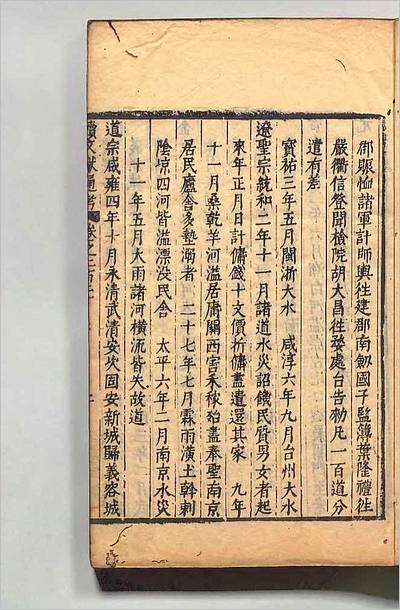 郎賑恤諸軍計師輿徃建郡南劒國子監簿葉隆禮徃
嚴衢信登聞檢院胡大昌徃婺處台告勑凡一百道分
遣有差
寳祐三年五月閩浙大水　咸淳六年九月台州大水
遼聖宗統和二年十一月諸道水災詔饑民質男女者起
來年正月日計傭錢十文價折傭盡遣還其家　九年
十一月桑乾羊河溢居庸關西害禾稼殆盡奉聖南京
居民廬舍多墊溺者　二十七年七月霖雨潢土斡剌
陰凉四河皆溢漂没民舍　太平六年二月南京水災
十一年五月大雨諸河橫流皆失故道
道宗咸雍四年十月永清武清安次固安新城歸義容城
續文獻通考　卷之二百二十一